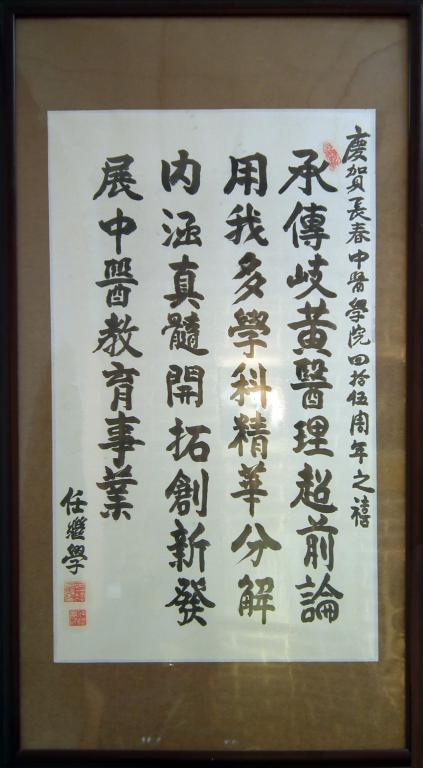 慶賀長春中醫學院四拾伍周年之禧
承傳岐黃醫理超前論
用我多學科精華分解
內涵真髓開拓創新發
展中醫教育事業
任繼學